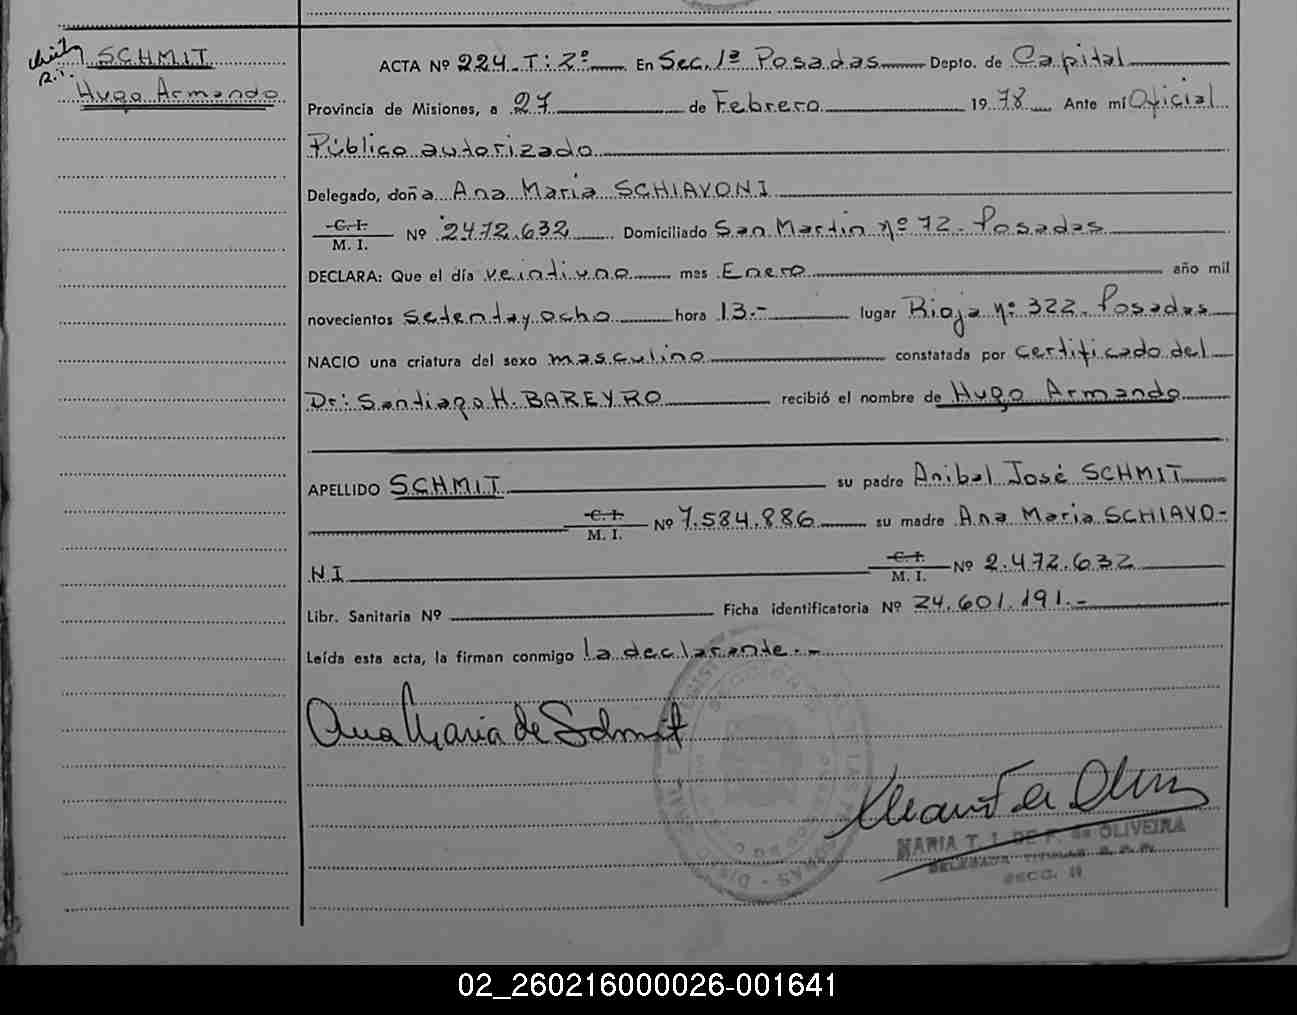 SCHMIT
Hugo Armando
ACTA Nº 224. T: 2º En Sec. 1ª Posadas Depto. de Capital
Provincia de Misiones, a 27 de Febrero 19 78 Ante mí Oficial
Público autorizado
Delegado, doña Ana Maria SCHIAVONI
C. I.
M. I. Nº 2472.632 Domiciliado San Martin nº 72. Posadas
DECLARA: Que el día veintiuno mes Enero año mil
novecientos setenta y ocho hora 13.- lugar Rioja nº 322. Posadas
NACIO una criatura del sexo masculino constatada por certificado del
Dr: Santiago H. BAREYRO recibió el nombre de Hugo Armando
APELLIDO SCHMIT su padre Anibal José SCHMIT
C. I.
M. I. Nº 7.584.886 su madre Ana Maria SCHIAVO-
NI C. I.
M. I. Nº 2.472.632
Libr. Sanitaria Nº Ficha identificatoria Nº 24.601.191.-
Leída esta acta, la firman conmigo la declarante.-
Ana Maria de Schmit
MARIA T. I. DE F. de OLIVEIRA
DELEGADA TITULAR
SECC.
02_260216000026-001641